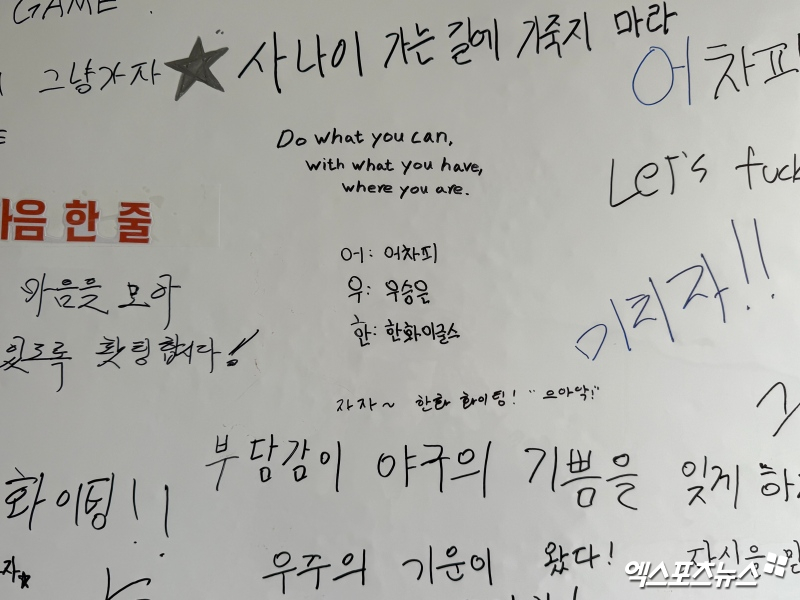 GAME!
사나이 가는 길에 기죽지 마라
그냥가자
어차피
Do what you can,
with what you have,
where you are.
Let's fuck
마음 한 줄
어: 어차피
우: 우승은
한: 한화이글스
마음을 모아
있도록 홧팅합시다!
미리자!!
자자~ 한화 화이팅! "으아악!"
부담감이 야구의 기쁨을 잊게 하
화이팅!!
우주의 기운이 왔다!
자신을 믿
자
엑스포츠뉴스